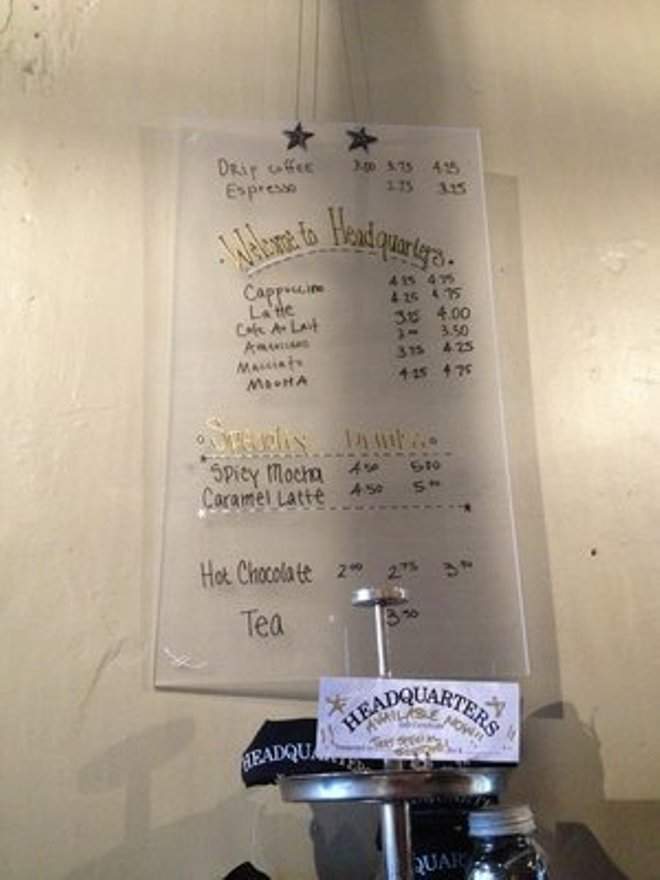 Drip coffee 3.00 3.75 4.25
Espresso 2.75 3.25
Welcome to Headquarters.
Cappuccino 4.25 4.75
Latte 4.25 4.75
Cafe Au Lait 3.25 4.00
Americano 3.00 3.50
Macciato 3.75 4.25
MOCHA 4.25 4.75
Specialty Drinks
Spicy Mocha 4.50 5.00
Caramel Latte 4.50 5.00
Hot Chocolate 2.00 2.75 3.50
Tea 3.50
HEADQUARTERS
AVAILABLE NOW!!
HEADQUARTERS
QUAR